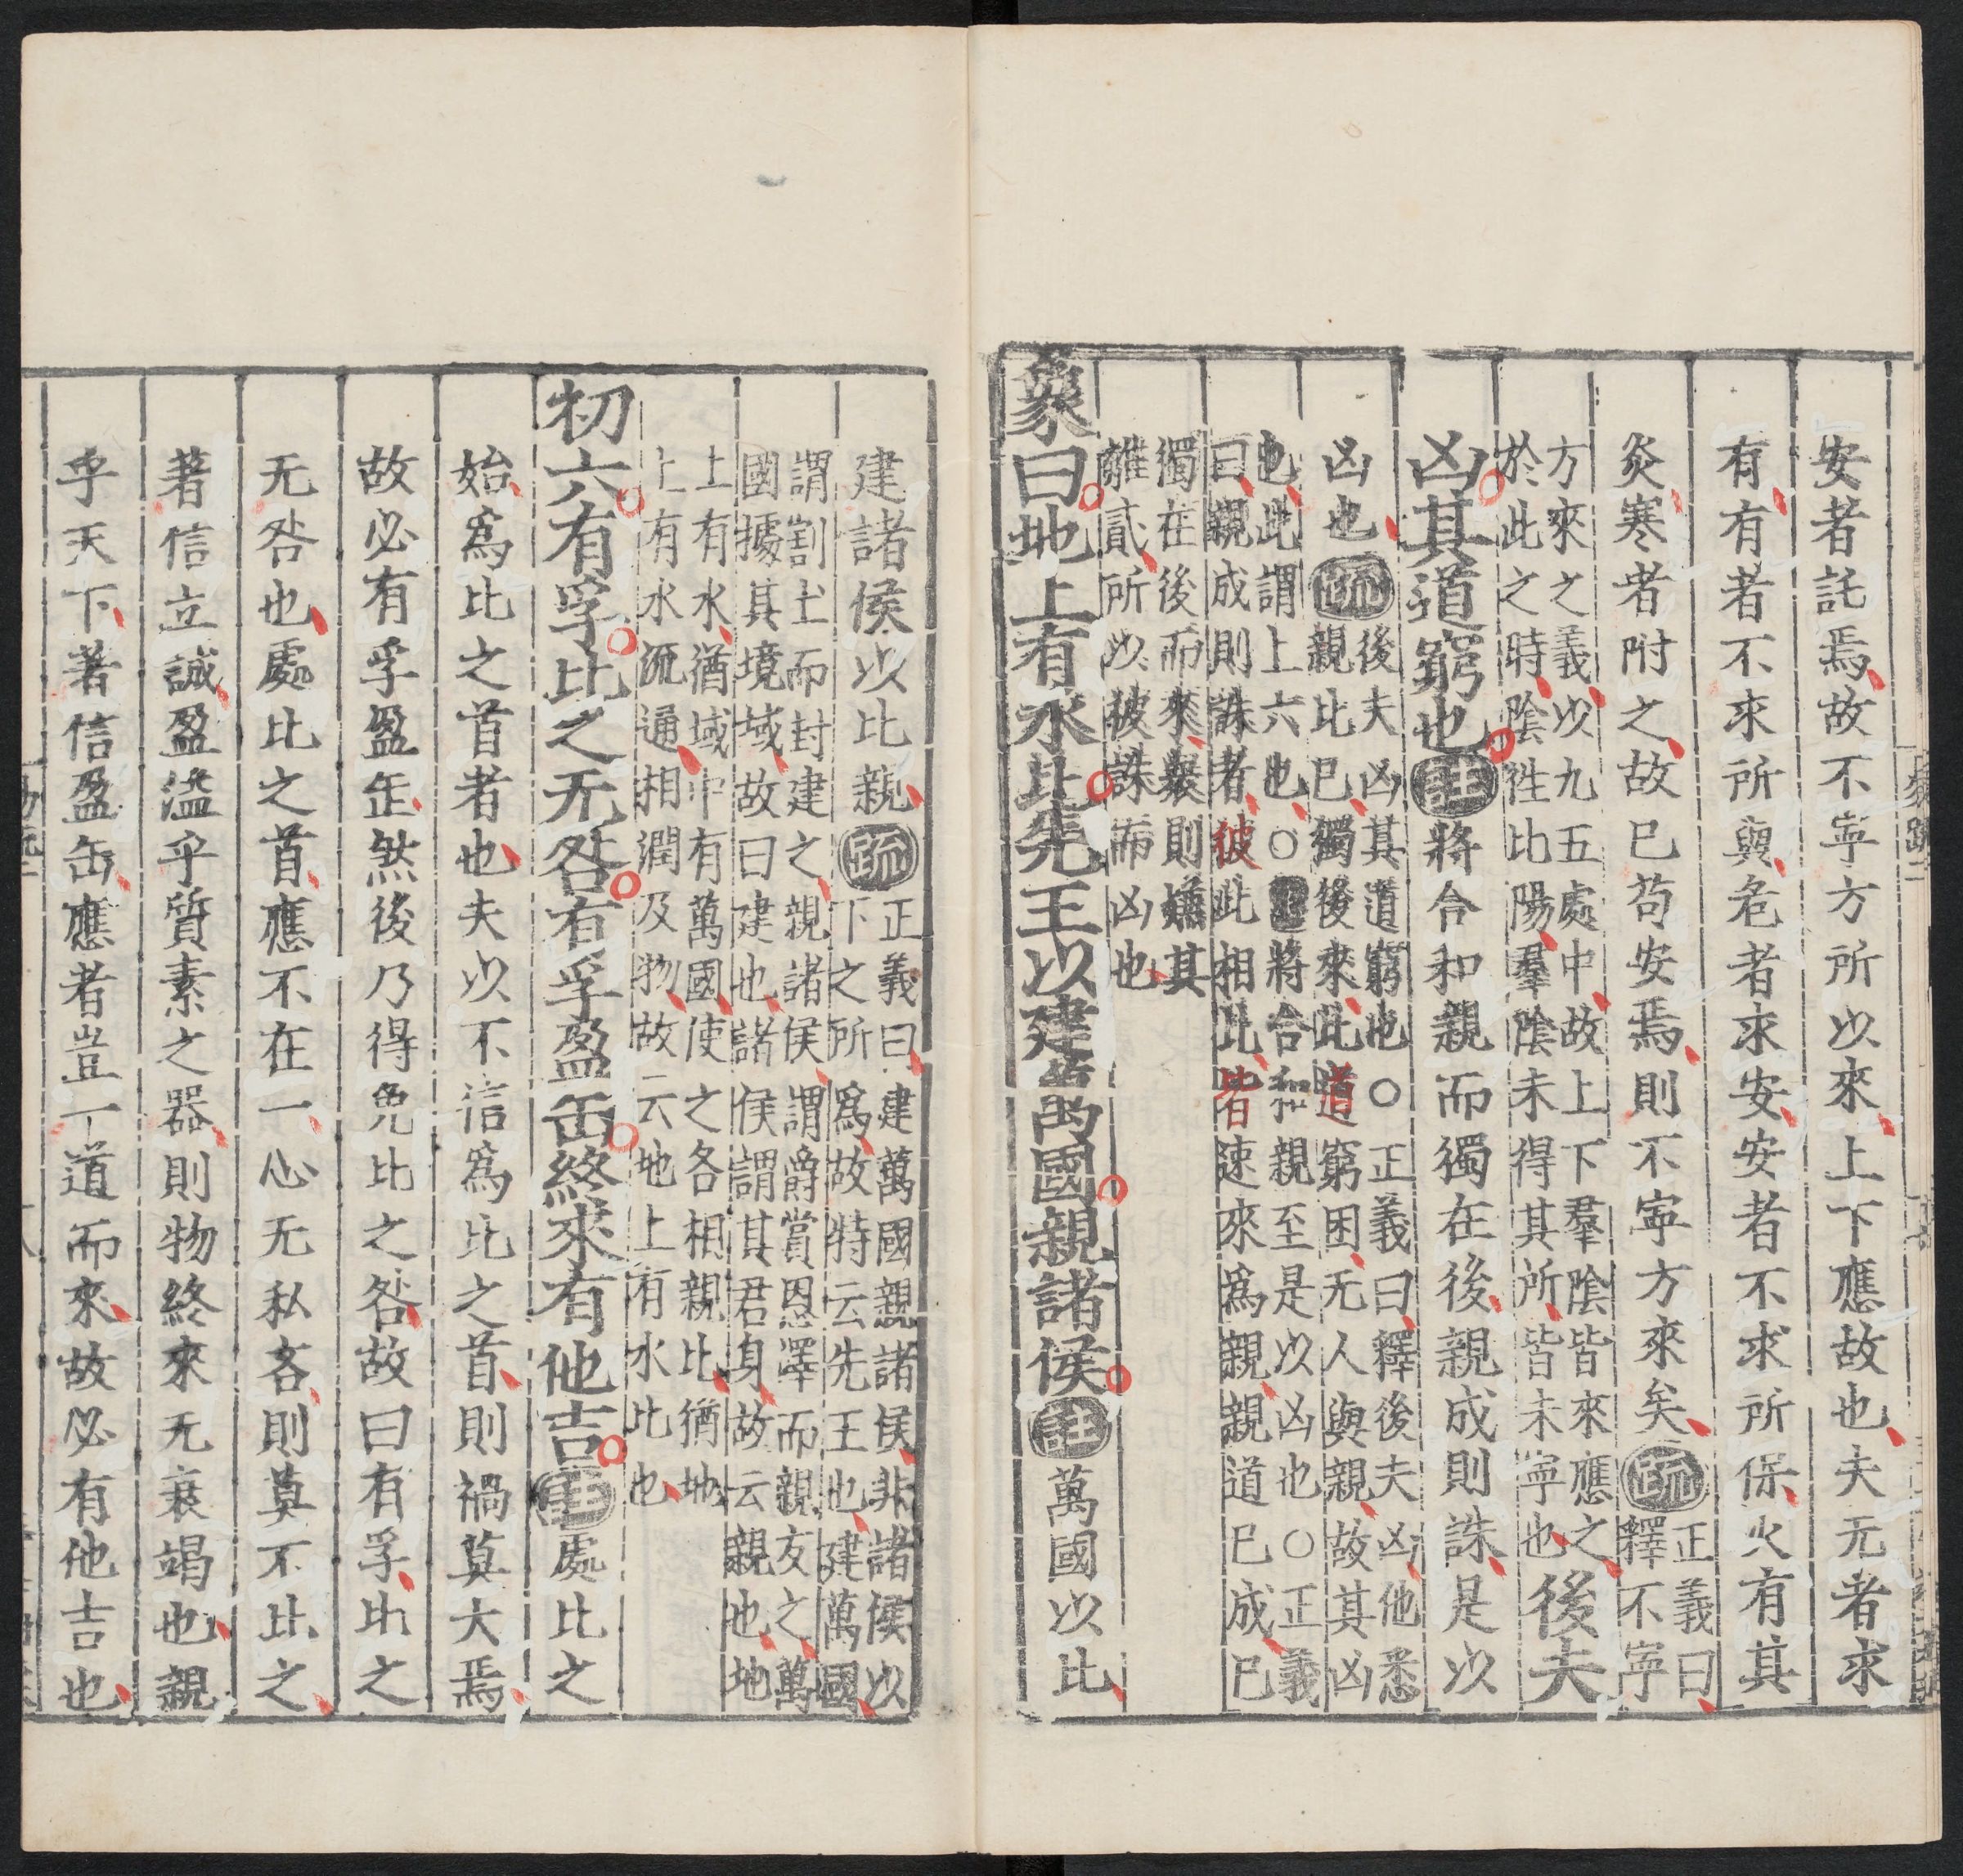 安者託焉故不寧方所以來上下應故也夫无者求
有有者不求所與危者求安安者不求所保火有其
炎寒者附之故已苟安焉則不寧方來矣疏正義曰
釋不寧
方來之義以九五處中故上下羣陰皆來應之
於此之時陰往比陽羣陰未得其所皆未寧也後夫
凶其道窮也註將合和親而獨在後親成則誅是以
凶也疏後夫凶其道窮也○正義曰釋後夫凶他悉
親比已獨後來比道窮困无人與親故其凶
也此謂上六也○註將合和親至是以凶也○正義
曰親成則誅者彼此相比皆速來爲親親道已成已
獨在後而來衆則嫌其
離貳所以被誅而凶也
象曰地上有水比先王以建萬國親諸侯註萬國以比
建諸侯以比親疏正義曰建萬國親諸侯非諸侯以
下之所爲故特云先王也建萬國
謂割土而封建之親諸侯謂爵賞恩澤而親友之萬
國據其境域故曰建也諸侯謂其君身故云親也地
上有水猶域中有萬國使之各相親比猶地
上有水流通相潤及物故云地上有水比也
初六有孚比之无咎有孚盈缶終來有他吉註處比之
始爲比之首者也夫以不信爲比之首則禍莫大焉
故必有孚盈缶然後乃得免比之咎故曰有孚比之
无咎也處比之首應不在一心无私吝則莫不比之
著信立誠盈溢乎質素之器則物終來无衰竭也親
乎天下著信盈缶應者豈一道而來故必有他吉也